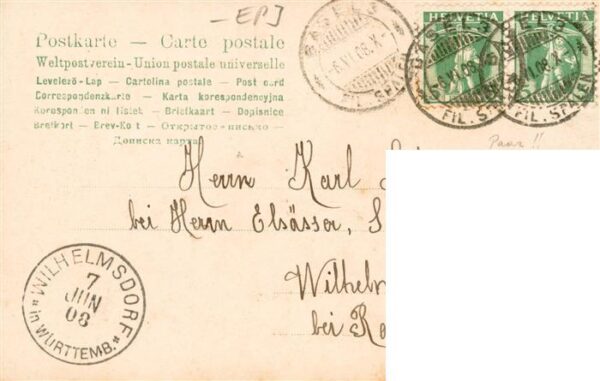 -EPJ
Postkarte — Carte postale
Weltpostverein - Union postale universelle
Levelező-Lap — Cartolina postale — Post card
Correspondenzkarte — Karta korespondencyjna
Korespondenční lístek — Briefkaart — Dopisnice
Brefkort — Brev-Kort — Открытое письмо —
Дописна картa
BASEL 3
-6.VI.08.X-
FIL. SPALEN
HELVETIA
HELVETIA
BASEL 3
-6.VI.08.X-
FIL. SPALEN
BASEL 3
VI.08.X-
FIL. SPALEN
Paar !!
Herrn Karl
bei Herrn Elsässer, S
Wilhel
bei Ra
WILHELMSDORF
7
JUN
08
in WÜRTTEMB.